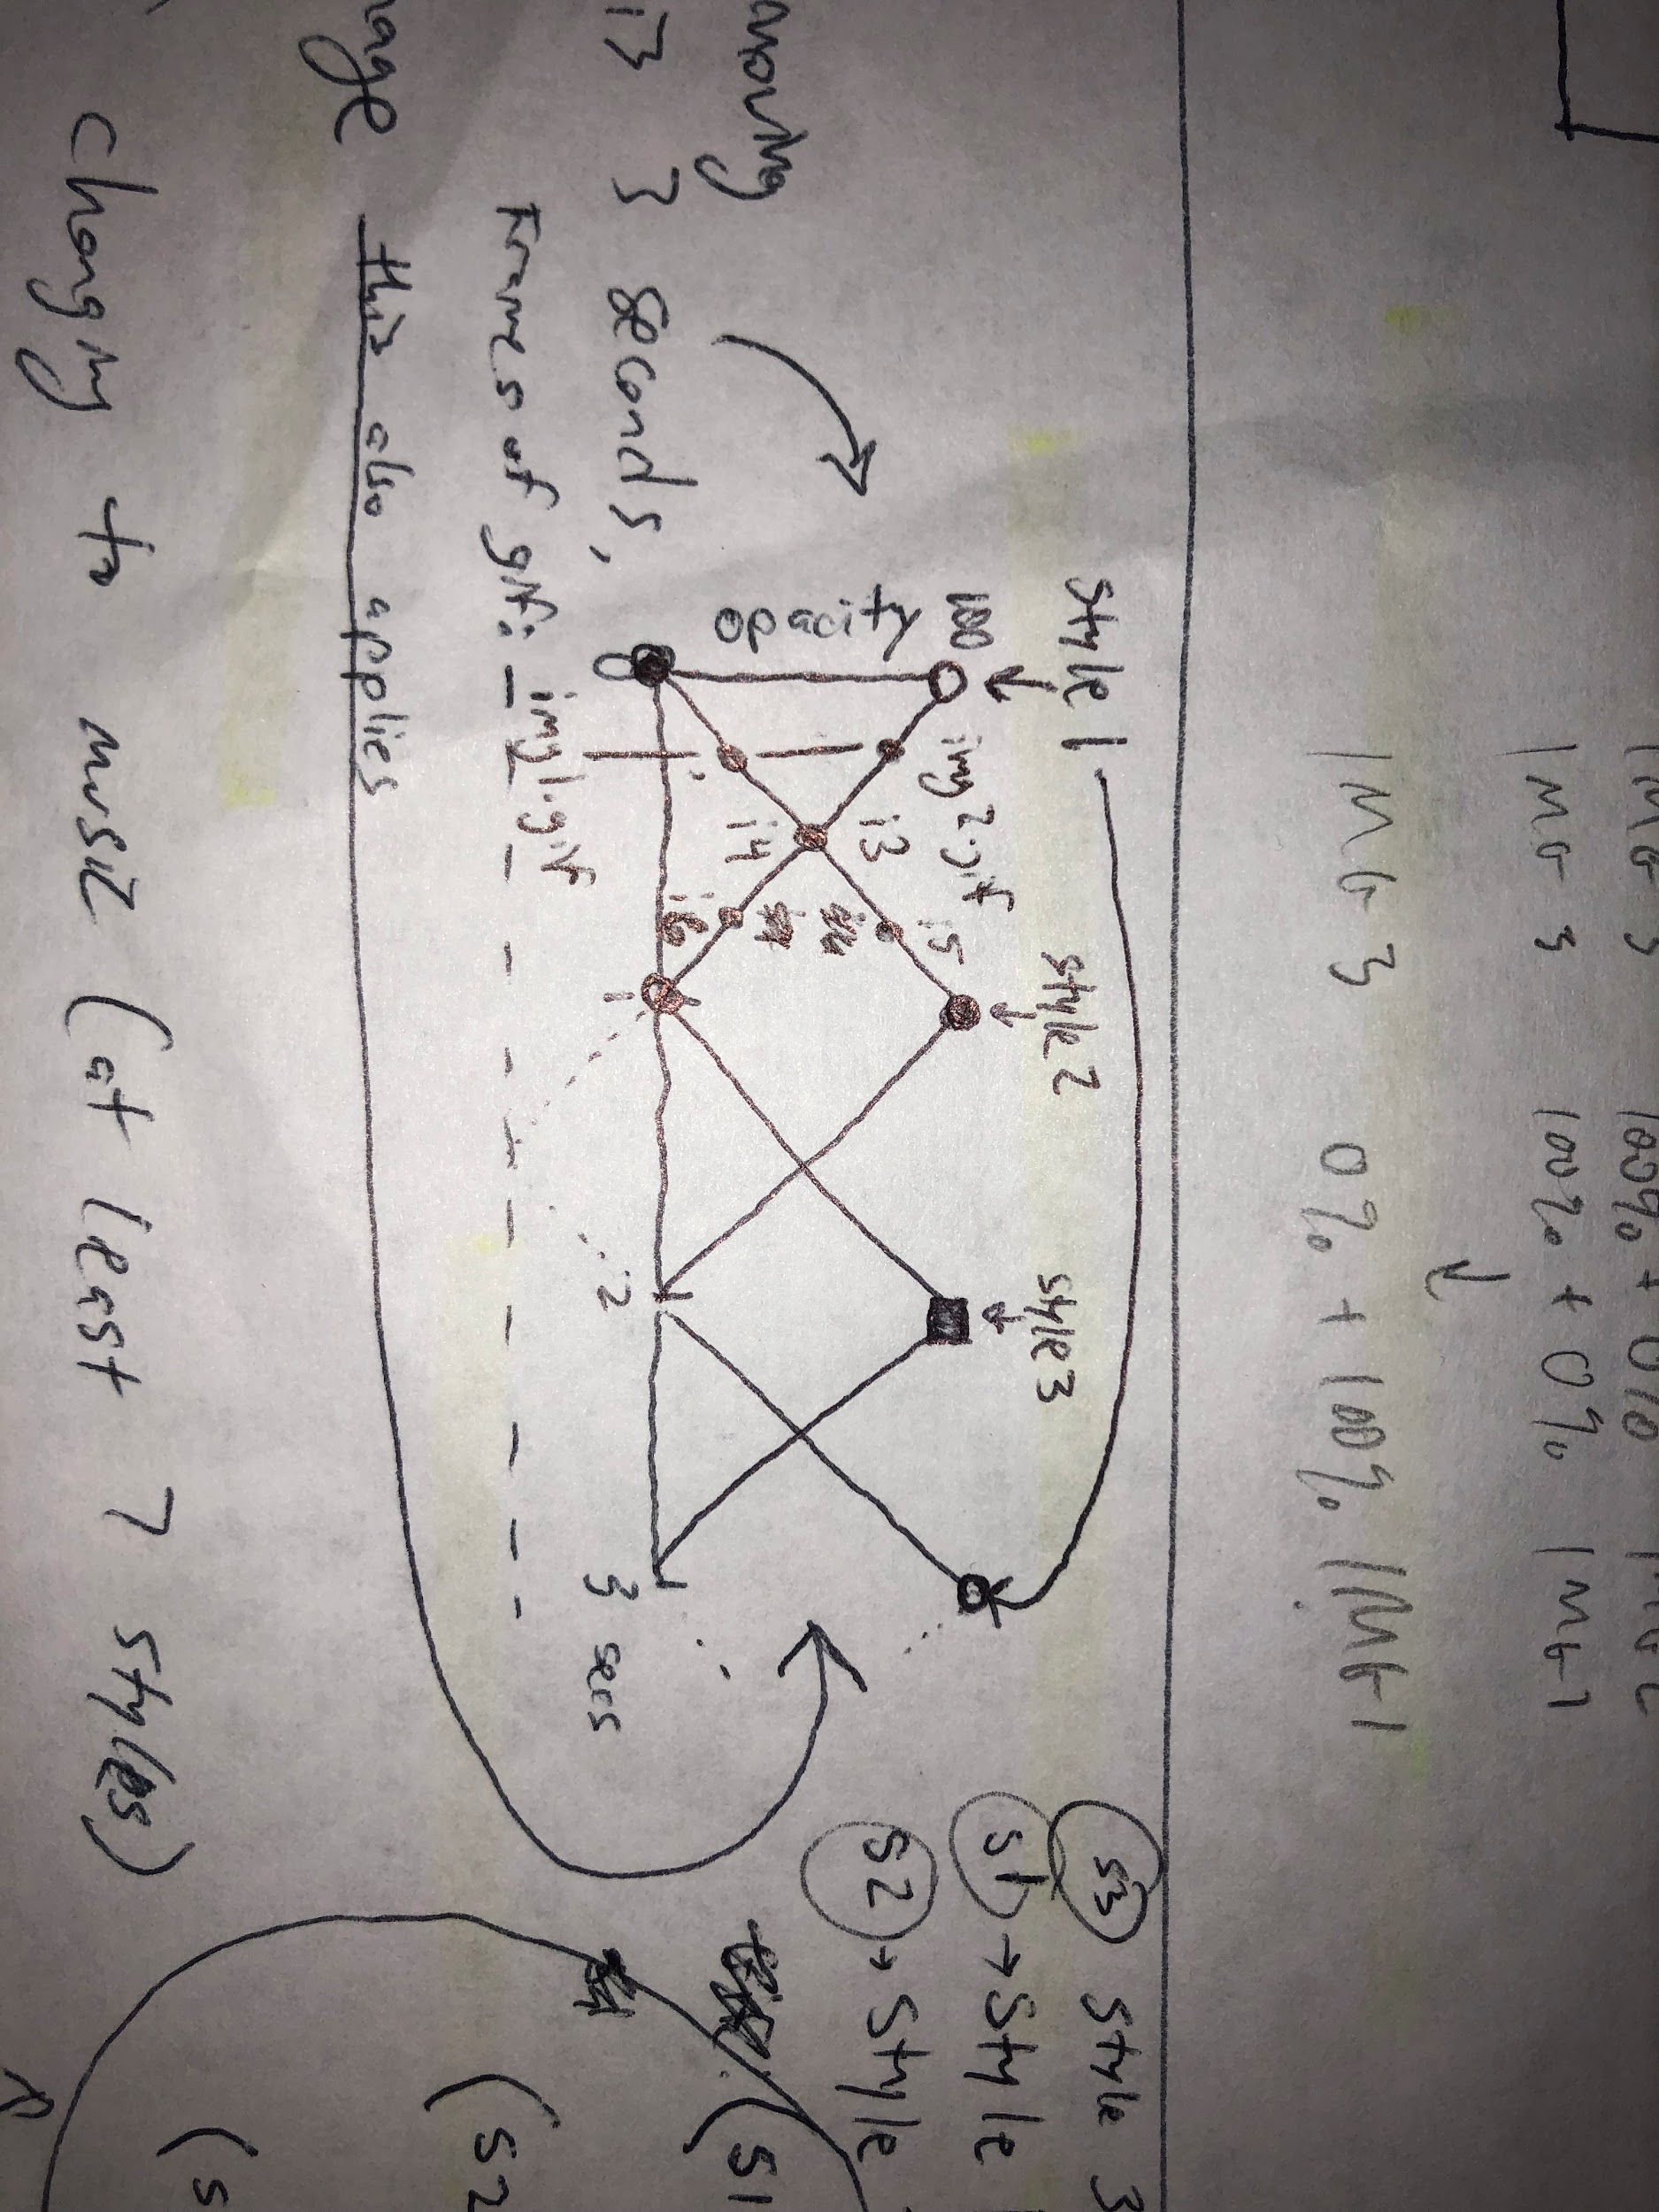 IMG 3
100% + 0% IMG 1
IMG 3
0% + 100% IMG 1
Style 1
Style 2
Style 3
100
opacity
0
img2.gif
i3
i5
i4
i6
1
2
3 secs
img1.gif
3 seconds,
Frames of gif:
this also applies
changing to music (at least 7 styles)
S3 Style 3
S1 → Style
S2 → Style
(S1
(S2
(S